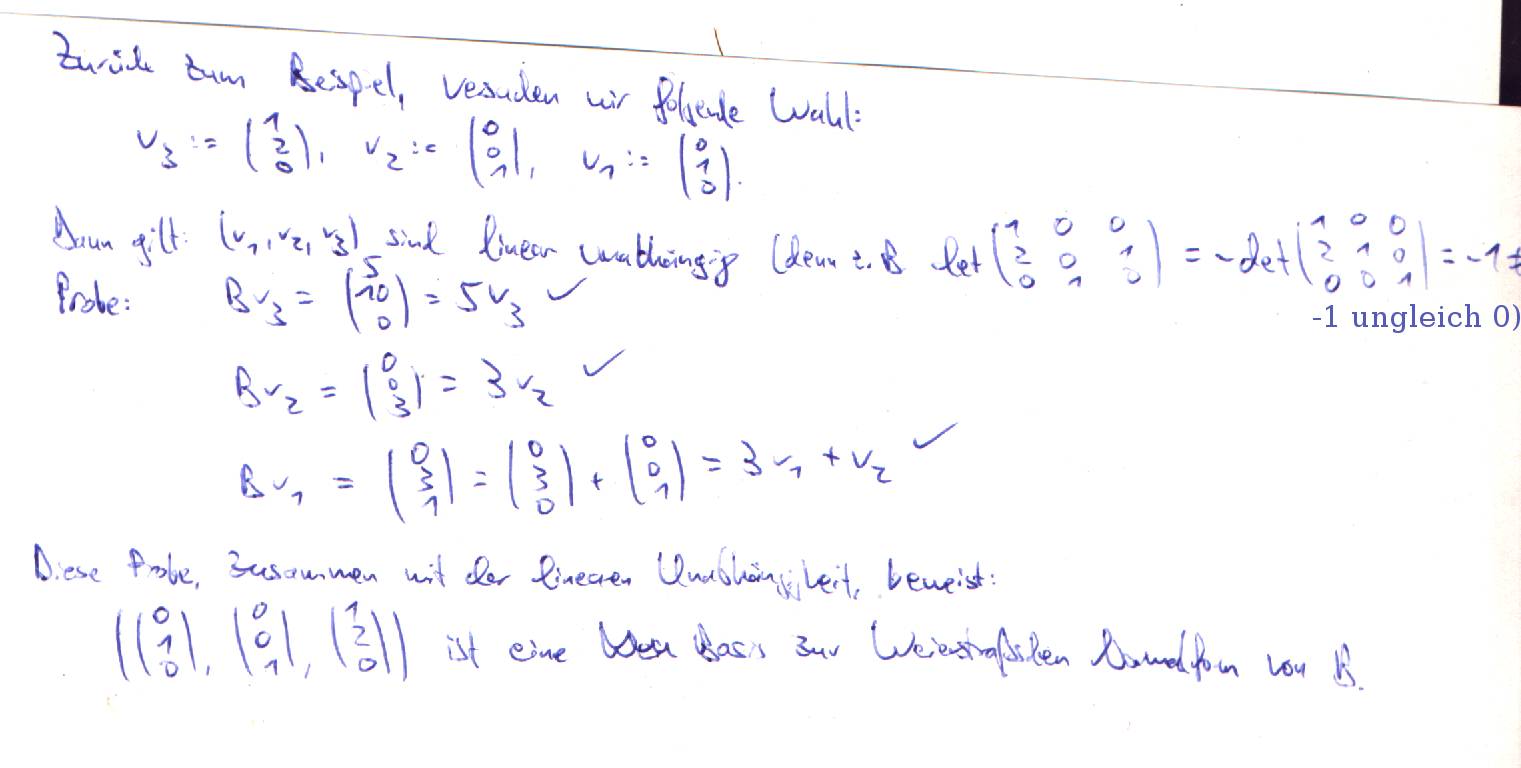 Zurück zum Beispiel, versuchen wir folgende Wahl:
v₃ := (1 2 0), v₂ := (0 0 1), v₁ := (0 1 0).
Dann gilt: (v₁, v₂, v₃) sind linear unabhängig (denn z.B det (1 0 0 / 2 0 1 / 0 1 0) = -det (1 0 0 / 2 1 0 / 0 0 1) = -1 ≠
-1 ungleich 0)
Probe: Bv₃ = (5 10 0) = 5v₃ ✓
Bv₂ = (0 0 3) = 3v₂ ✓
Bv₁ = (0 3 1) = (0 3 0) + (0 0 1) = 3v₁ + v₂ ✓
Diese Probe, zusammen mit der linearen Unabhängigkeit, beweist:
((0 1 0), (0 0 1), (1 2 0)) ist eine Basis zur Weierstraßschen Normalform von B.